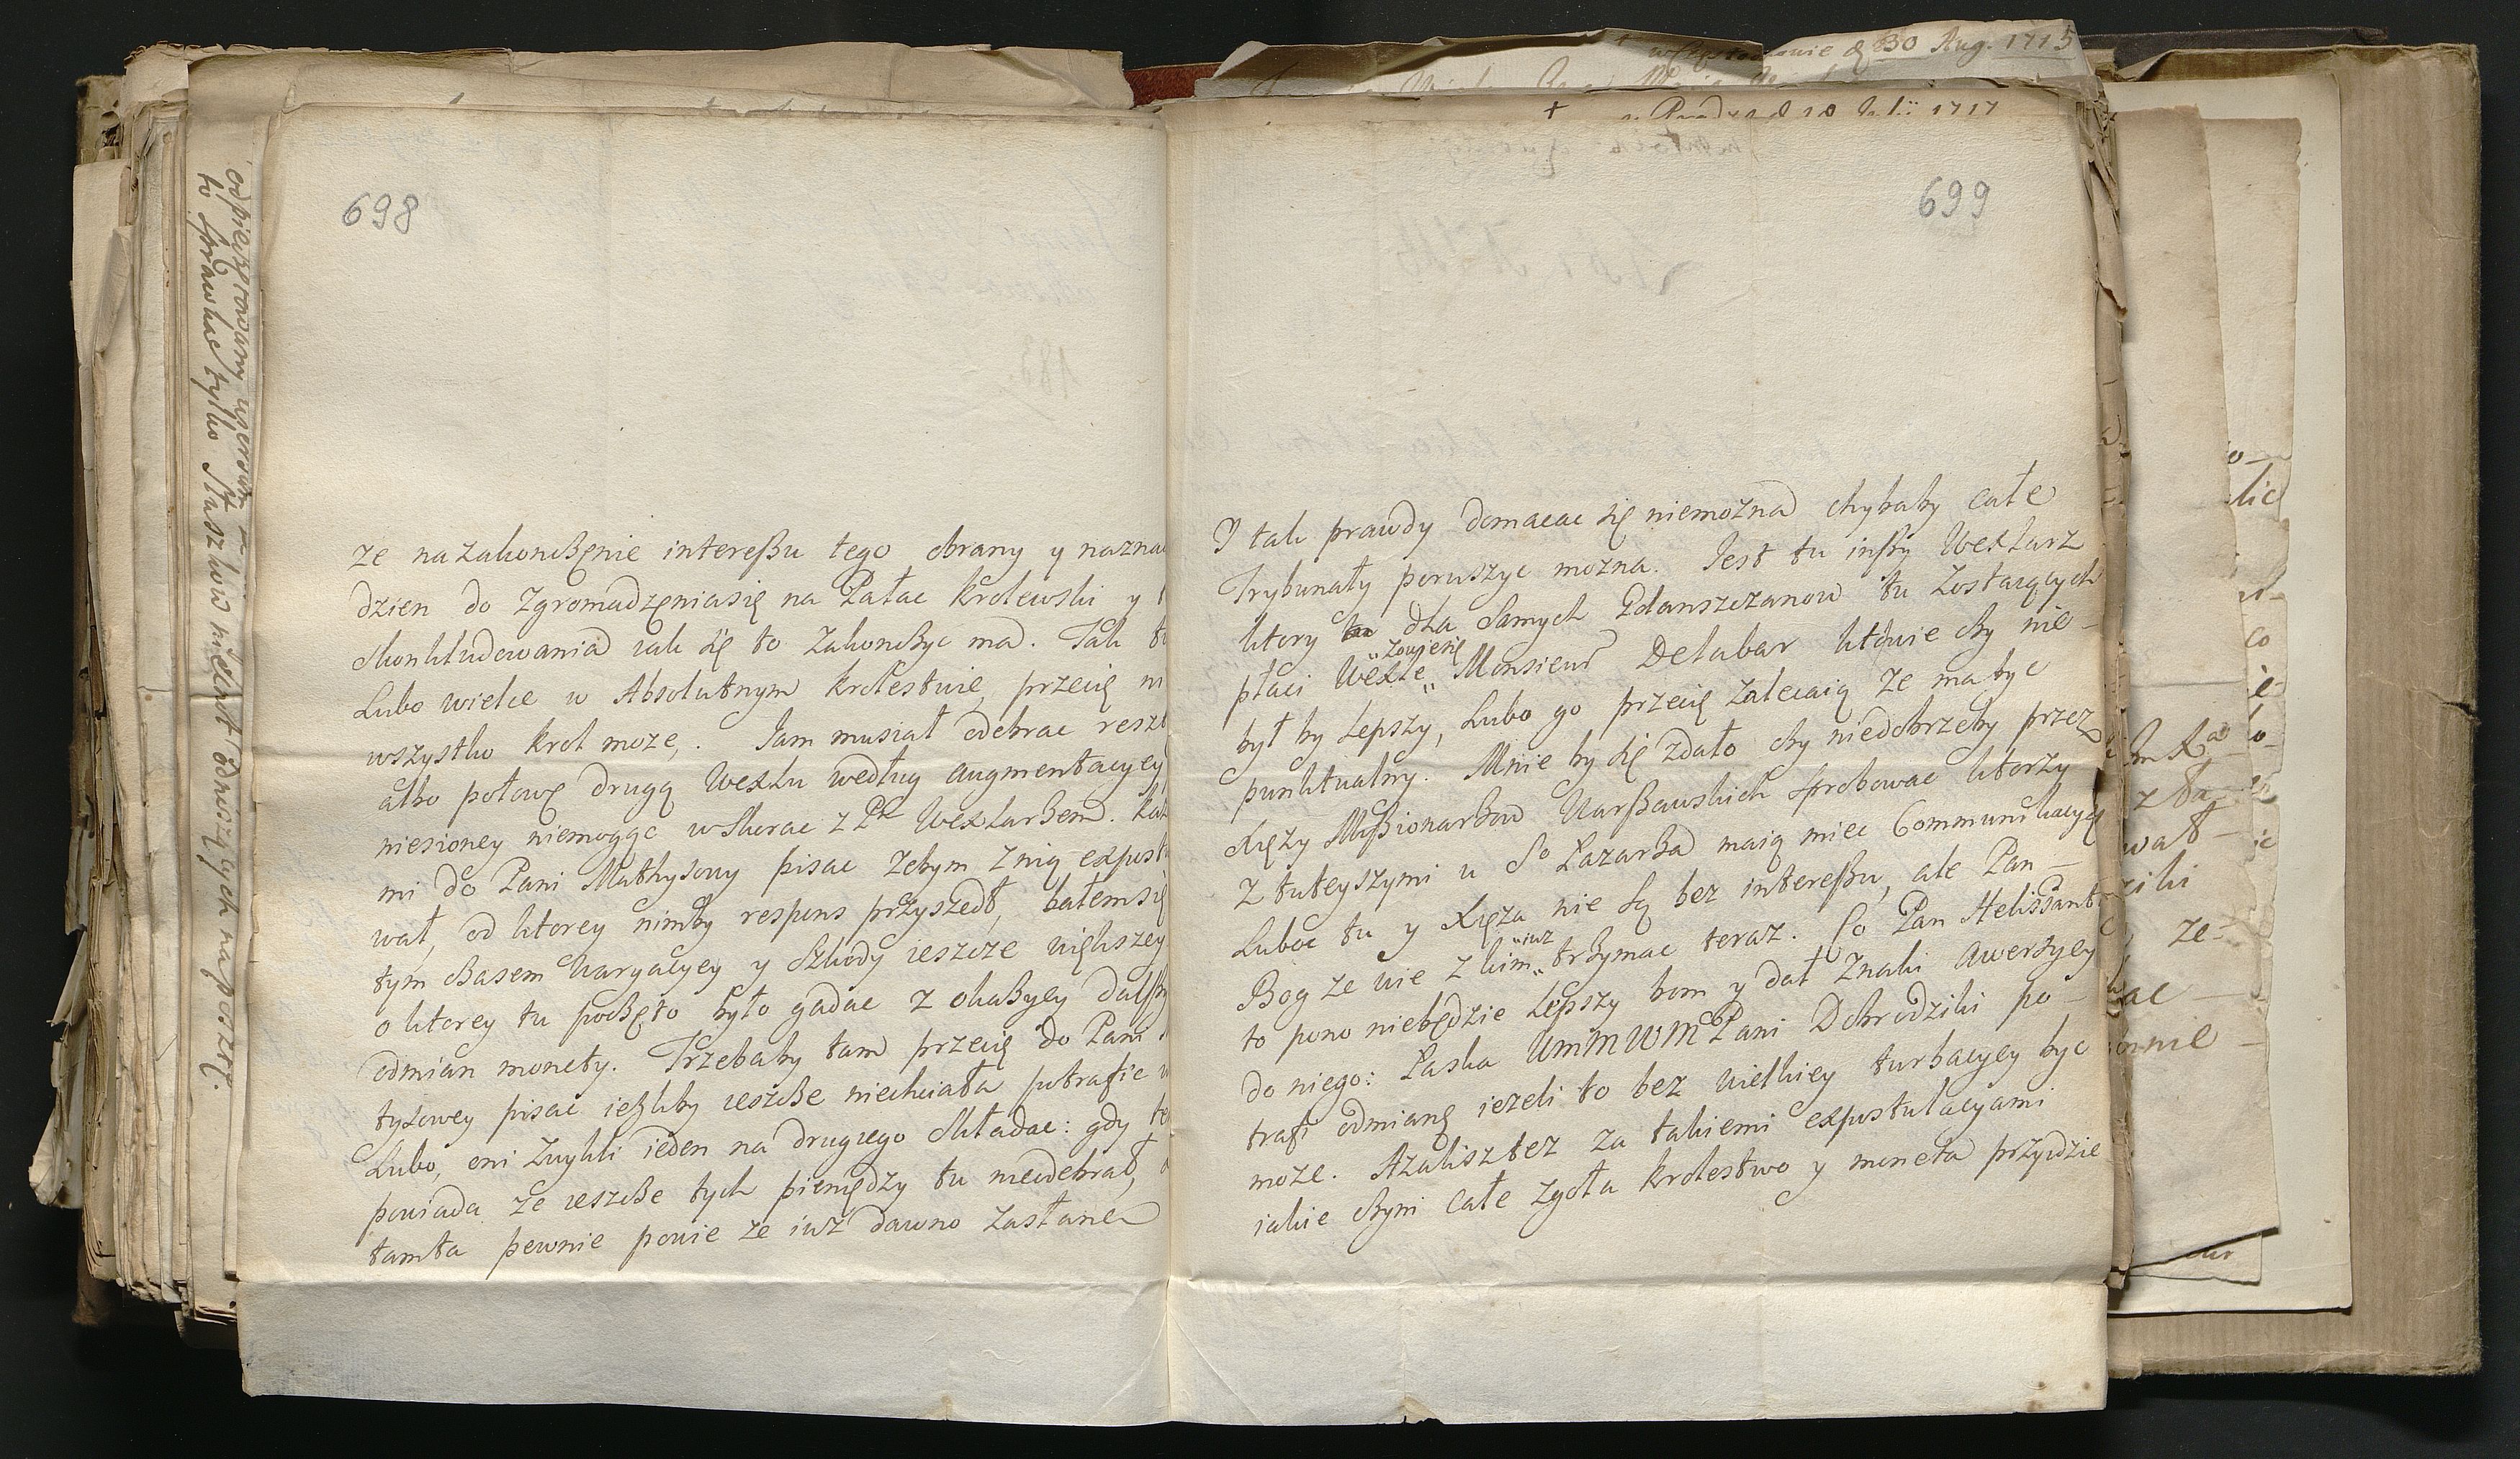 odprezentowany
to sprawkac tylko Stuszkow odnoszących na poczę.
w Częstochowie d 30 Aug. 1715
d 10 Julii 1717
698
ze na zakonczęnie interessu tego obrany y nazna
dzien do Zgromadzęniasię na Pałac Krolewski y
skonkludowania iak się to zakonczyc ma. Tak
Lubo wielce w Absolutnym krolestwie, przecię
wszystko krol moze,. Iam musiał odebrac resz
albo połowę drugą Wexlu według augmentacyey
niesioney niemogąc wskorac z Pm Wexlarzem. kaz
mi do Pani Mathysowy pisac zebym znią expost
wał, od ktorey nimby respons przyszedł, bałem się
tym czasem waryacyey y szkody ieszcze większey
o ktorey tu poczęto było gadac z okazyey dalszy
odmian monety. Trzebaby tam przecię do Pani
tysowey pisac iezliby ieszcze niechciała potrafic
Lubo, oni zwykli ieden na drugiego składac: gdy te
powiada ze ieszcze tych pieniędzy tu nieodebrał,
tamta pewnie powie ze iuz dawno zasłane
699
Y tak prawdy domacac się niemozna chybaby całe
Trybunały poruszyc mozna. Jest tu inszy Wexlarz
ktory dla samych Gdanszczanow tu zostaiących
płaci Wexle „zowiesię„ Monsieur Delabar ktowie czy nie-
byłby lepszy, Lubo go przecię zalecaią ze ma byc
punktualny. Mnie by się zdało czy niedobrzeby przez
Xięzy Missionarzow Warszawskich sprobowac ktorzy
z tuteyszymi u So Lazarza maią miec Communikacyę
Luboc tu y Xięza nie są bez interessu, ale Pan-
Bog ze wie z kim „iuz„ trzymac teraz. Co Pan Helissant
to pono niebędzie lepszy bom y dał znaki awersyey
do niego: Laska WmMWMPani Dobrodziki po-
trafi odmianę iezeli to bez wielkiey turbacyey byc
moze. Azalisztez za takiemi expostulacyami
iakie czyni całe zgoła krolestwo y moneta przyidzie